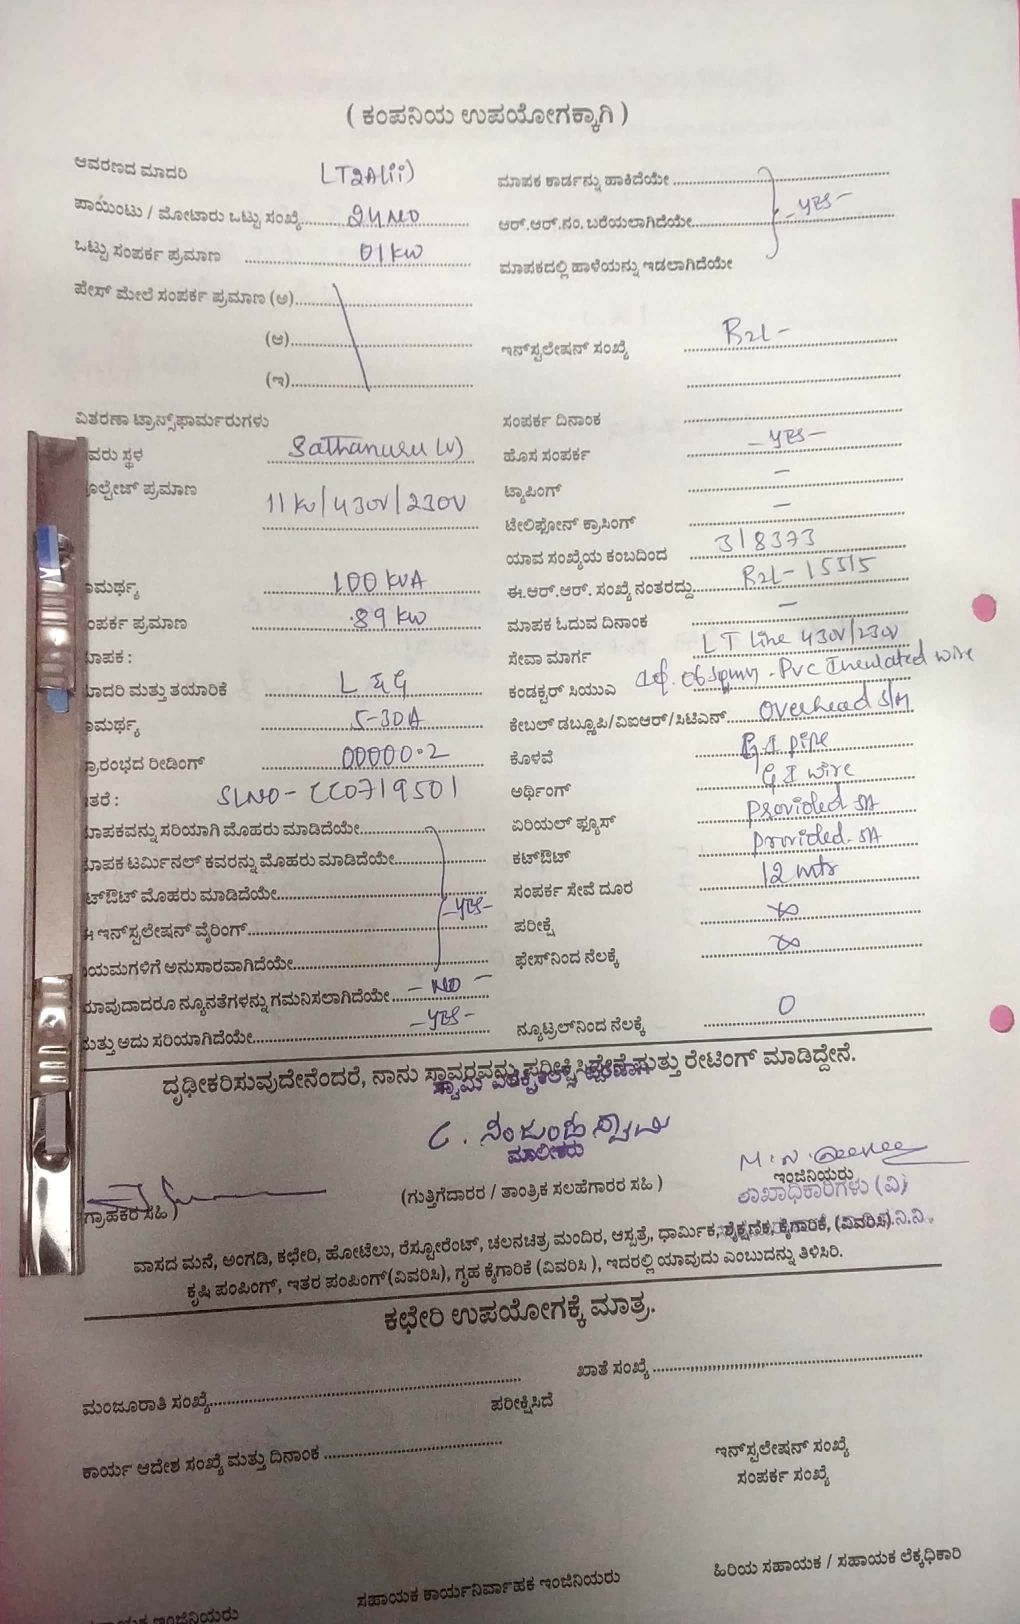 ( ಕಂಪನಿಯ ಉಪಯೋಗಕ್ಕಾಗಿ )
ಆವರಣದ ಮಾದರಿ LT2A(ii)
ಪಾಯಿಂಟು / ಮೋಟಾರು ಒಟ್ಟು ಸಂಖ್ಯೆ 24 NO
ಒಟ್ಟು ಸಂಪರ್ಕ ಪ್ರಮಾಣ 01 KW
ಫೇಸ್ ಮೇಲೆ ಸಂಪರ್ಕ ಪ್ರಮಾಣ (ಅ)
(ಆ)
(ಇ)
ವಿತರಣಾ ಟ್ರಾನ್ಸ್‌ಫಾರ್ಮರುಗಳು
ವರು ಸ್ಥಳ Sathanuru (V)
ಪ್ರಮಾಣ 11 KV/430V/230V
ಾಮರ್ಥ್ಯ 100 KVA
ಂಪರ್ಕ ಪ್ರಮಾಣ 89 KW
ಾಪಕ :
ಾದರಿ ಮತ್ತು ತಯಾರಿಕೆ L & G
ಾಮರ್ಥ್ಯ 5-30A
ರಂಭದ ರೀಡಿಂಗ್ 00000.2
ತರೆ : SLNO - CC0719501
ಾಪಕವನ್ನು ಸರಿಯಾಗಿ ಮೊಹರು ಮಾಡಿದೆಯೇ
ಾಪಕ ಟರ್ಮಿನಲ್ ಕವರನ್ನು ಮೊಹರು ಮಾಡಿದೆಯೇ
ಟ್‌ಔಟ್ ಮೊಹರು ಮಾಡಿದೆಯೇ
ಈ ಇನ್‌ಸ್ಟಲೇಷನ್ ವೈರಿಂಗ್ - YES -
ಯಮಗಳಿಗೆ ಅನುಸಾರವಾಗಿದೆಯೇ
ಯಾವುದಾದರೂ ನ್ಯೂನತೆಗಳನ್ನು ಗಮನಿಸಲಾಗಿದೆಯೇ - NO -
ಮತ್ತು ಅದು ಸರಿಯಾಗಿದೆಯೇ - YES -
ಮಾಪಕ ಕಾರ್ಡನ್ನು ಹಾಕಿದೆಯೇ
ಆರ್.ಆರ್.ನಂ. ಬರೆಯಲಾಗಿದೆಯೇ - YES -
ಮಾಪಕದಲ್ಲಿ ಹಾಳೆಯನ್ನು ಇಡಲಾಗಿದೆಯೇ
ಇನ್‌ಸ್ಟಲೇಷನ್ ಸಂಖ್ಯೆ
ಸಂಪರ್ಕ ದಿನಾಂಕ
ಹೊಸ ಸಂಪರ್ಕ - YES -
ಟ್ಯಾಪಿಂಗ್ -
ಟೇಲಿಫೋನ್ ಕ್ರಾಸಿಂಗ್ -
ಯಾವ ಸಂಖ್ಯೆಯ ಕಂಬದಿಂದ 3/8373
ಈ.ಆರ್.ಆರ್. ಸಂಖ್ಯೆ ನಂತರದ್ದು
ಮಾಪಕ ಓದುವ ದಿನಾಂಕ -
ಸೇವಾ ಮಾರ್ಗ LT line 430V/230V
ಕಂಡಕ್ಟರ್ ಸಿಯುಎ 06 Sqmm - PVC Insulated wire
ಕೇಬಲ್ ಡಬ್ಲ್ಯೂಪಿ/ವಿಐಆರ್/ಸಿಟಿಎನ್ Overhead S/M
ಕೊಳವೆ G.I pipe
ಅರ್ಥಿಂಗ್ G I wire
ಏರಿಯಲ್ ಫ್ಯೂಸ್ Provided 5A
ಕಟ್‌ಔಟ್ Provided 5A
ಸಂಪರ್ಕ ಸೇವೆ ದೂರ 12 mtr
ಪರೀಕ್ಷೆ ∞
ಫೇಸ್‌ನಿಂದ ನೆಲಕ್ಕೆ ∞
ನ್ಯೂಟ್ರಲ್‌ನಿಂದ ನೆಲಕ್ಕೆ 0
ದೃಢೀಕರಿಸುವುದೇನೆಂದರೆ, ನಾನು ಸ್ಥಾವರವನ್ನು ಪರೀಕ್ಷಿಸಿದ್ದೇನೆ ಮತ್ತು ರೇಟಿಂಗ್ ಮಾಡಿದ್ದೇನೆ.
ಮಾಲೀಕರು
ಗ್ರಾಹಕರ ಸಹಿ )
(ಗುತ್ತಿಗೆದಾರರ / ತಾಂತ್ರಿಕ ಸಲಹೆಗಾರರ ಸಹಿ )
ಇಂಜಿನಿಯರು
ಶಾಖಾಧಿಕಾರಿಗಳು (ವಿ)
ವಾಸದ ಮನೆ, ಅಂಗಡಿ, ಕಛೇರಿ, ಹೋಟೆಲು, ರೆಸ್ಟೋರೆಂಟ್, ಚಲನಚಿತ್ರ ಮಂದಿರ, ಆಸ್ಪತ್ರೆ, ಧಾರ್ಮಿಕ, ಶೈಕ್ಷಣಿಕ, ಕೈಗಾರಿಕೆ, (ವಿವರಿಸಿ)
ಕೃಷಿ ಪಂಪಿಂಗ್, ಇತರ ಪಂಪಿಂಗ್(ವಿವರಿಸಿ), ಗೃಹ ಕೈಗಾರಿಕೆ (ವಿವರಿಸಿ ), ಇದರಲ್ಲಿ ಯಾವುದು ಎಂಬುದನ್ನು ತಿಳಿಸಿರಿ.
ಕಛೇರಿ ಉಪಯೋಗಕ್ಕೆ ಮಾತ್ರ.
ಮಂಜೂರಾತಿ ಸಂಖ್ಯೆ
ಖಾತೆ ಸಂಖ್ಯೆ
ಪರೀಕ್ಷಿಸಿದೆ
ಕಾರ್ಯ ಆದೇಶ ಸಂಖ್ಯೆ ಮತ್ತು ದಿನಾಂಕ
ಇನ್‌ಸ್ಟಲೇಷನ್ ಸಂಖ್ಯೆ
ಸಂಪರ್ಕ ಸಂಖ್ಯೆ
ಇಂಜಿನಿಯರು
ಸಹಾಯಕ ಕಾರ್ಯನಿರ್ವಾಹಕ ಇಂಜಿನಿಯರು
ಹಿರಿಯ ಸಹಾಯಕ / ಸಹಾಯಕ ಲೆಕ್ಕಧಿಕಾರಿ